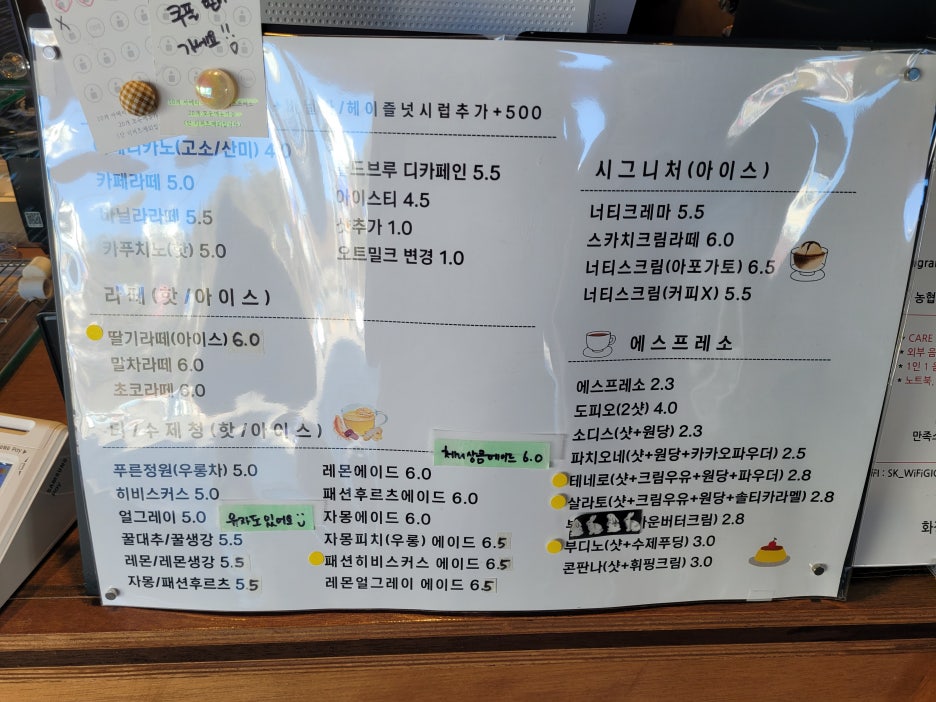 쿠폰
/헤이즐넛시럽추가+500
(고소/산미) 4.0
카페라떼 5.0
바닐라라떼 5.5
카푸치노(핫) 5.0
콜드브루 디카페인 5.5
아이스티 4.5
샷추가 1.0
오트밀크 변경 1.0
라떼(핫/아이스)
딸기라떼(아이스) 6.0
말차라떼 6.0
초코라떼 6.0
티/수제청(핫/아이스)
푸른정원(우롱차) 5.0
히비스커스 5.0
얼그레이 5.0
유자도 있어요
꿀대추/꿀생강 5.5
레몬/레몬생강 5.5
자몽/패션후르츠 5.5
에이드 6.0
레몬에이드 6.0
패션후르츠에이드 6.0
자몽에이드 6.0
자몽피치(우롱) 에이드 6.5
패션히비스커스 에이드 6.5
레몬얼그레이 에이드 6.5
시그니처(아이스)
너티크레마 5.5
스카치크림라떼 6.0
너티스크림(아포가토) 6.5
너티스크림(커피X) 5.5
에스프레소
에스프레소 2.3
도피오(2샷) 4.0
소디스(샷+원당) 2.3
파치오네(샷+원당+카카오파우더) 2.5
테네로(샷+크림우유+원당+파우더) 2.8
살라토(샷+크림우유+원당+솔티카라멜) 2.8
운버터크림) 2.8
부디노(샷+수제푸딩) 3.0
콘판나(샷+휘핑크림) 3.0
농협
* CARE
* 외부 음
* 1인 1 음
* 노트북,
만족스
iFI : SK_WiFiGI
화장
SAMSUNG